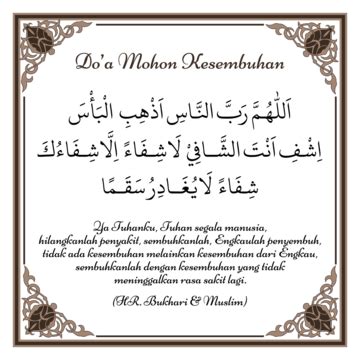 Do'a Mohon Kesembuhan
اَللّٰهُمَّ رَبَّ النَّاسِ اَذْهِبِ الْبَأْسَ
اِشْفِ اَنْتَ الشَّافِيْ لَاشِفَاءَ اِلَّاشِفَاءُكَ
شِفَاءً لَايُغَادِرُ سَقَمًا
Ya Tuhanku, Tuhan segala manusia,
hilangkanlah penyakit, sembuhkanlah, Engkaulah penyembuh,
tidak ada kesembuhan melainkan kesembuhan dari Engkau,
sembuhkanlah dengan kesembuhan yang tidak
meninggalkan rasa sakit lagi.
(HR. Bukhari & Muslim)